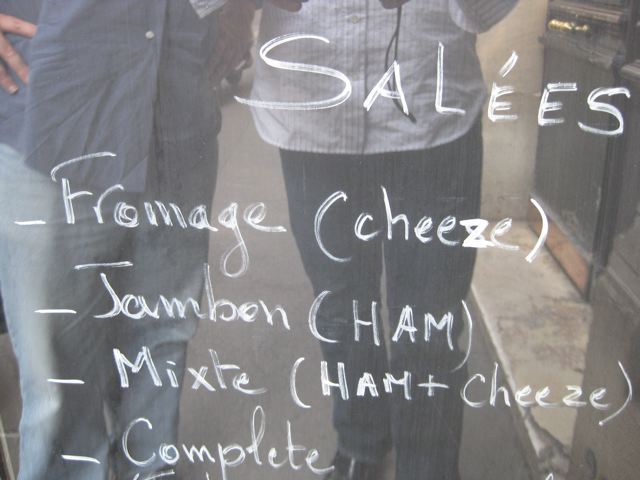 SALÉES
- Fromage (cheeze)
- Jambon (HAM)
- Mixte (HAM + cheeze)
- Complete